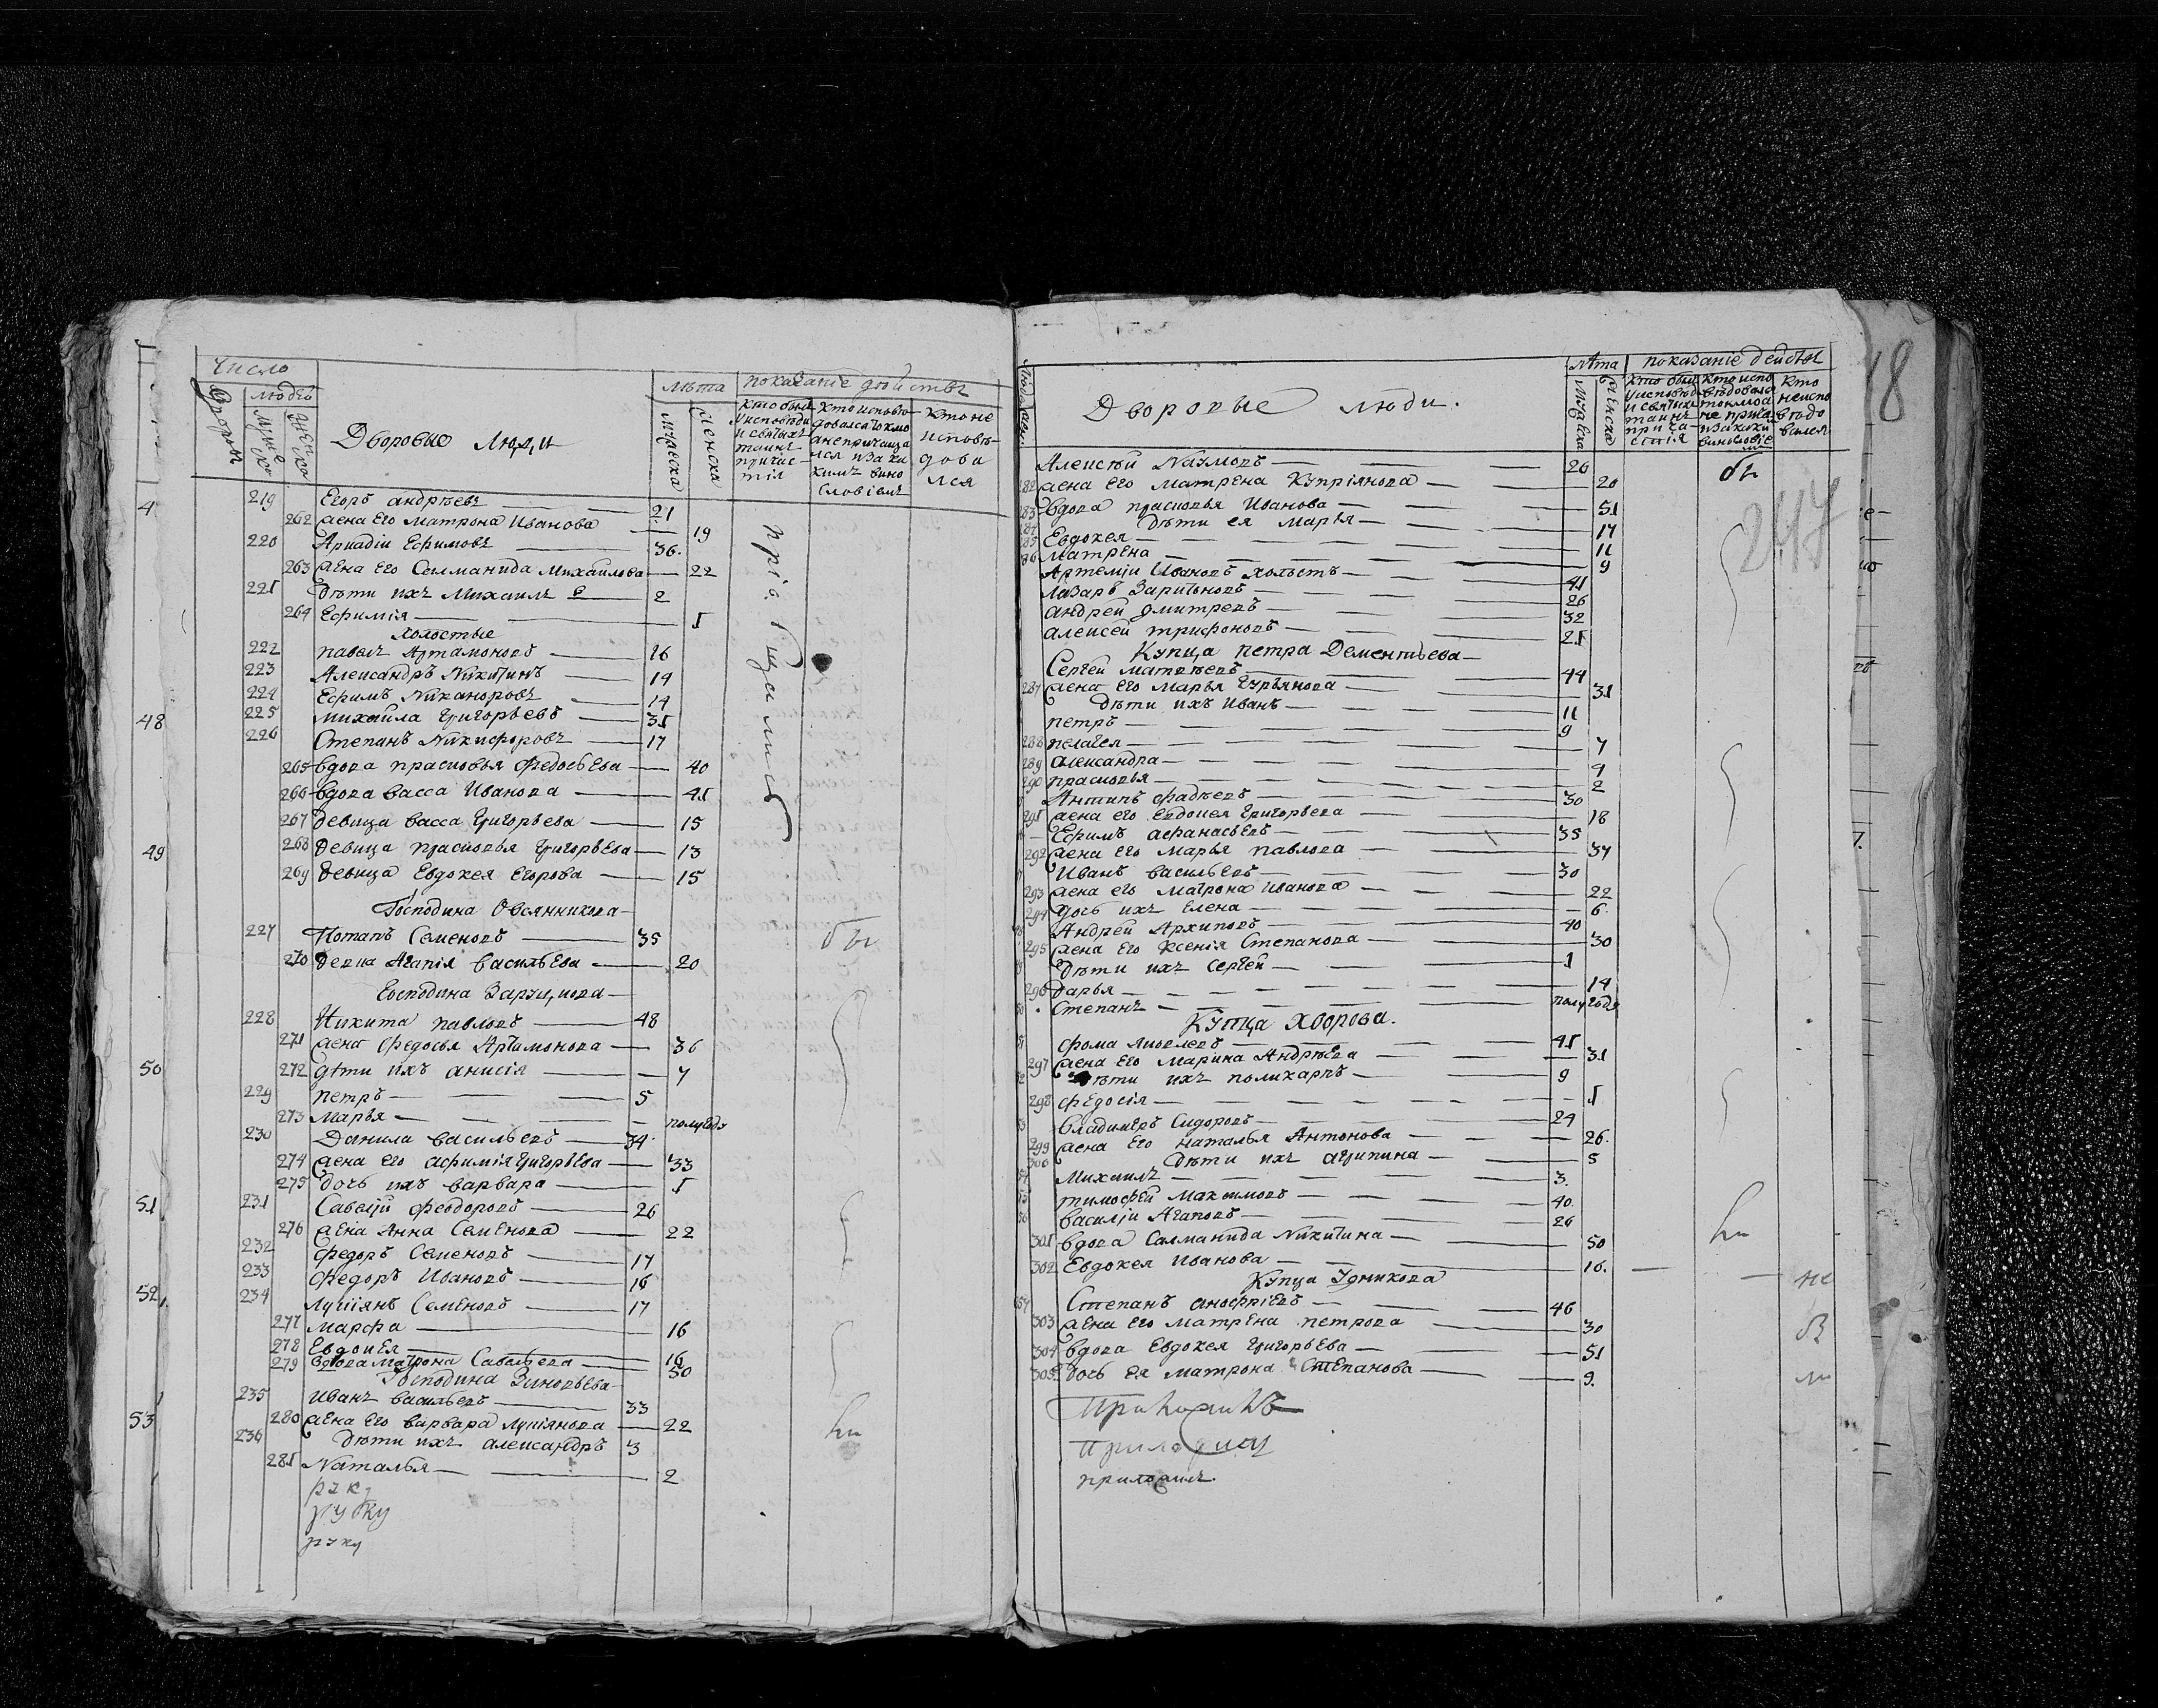 Число
людей
Дворовъ
Дворовые Люди
лѣта
мужеска
женска
показание действъ
кто былъ у исповѣди и святыхъ таинъ причастія
кто исповѣдовался токмо а не причащался и за какимъ винословіемъ
кто не исповѣдовался
219 Егоръ андрѣевъ 21
262 жена Его Матрона Иванова 19
220 Аркадіи Ефимовъ 36.
263 жена Его Салманида Михайлова 22
221 дѣти ихъ Михаилъ 2
264 Ефимія 1
холостые
222 павелъ Артамоновъ 26
223 Александръ Никитинъ 19
224 Ефимъ Никаноровъ 14
48 225 михайла григорьевъ 31
226 Степанъ Никифоровъ 17
265 вдова прасковья Федосѣева 40
266 вдова васса Иванова 41
267 девица васса григорьева 15
49 268 девица прасковья григорьева 13
269 девица Евдокея Егорова 15
Господина Овсянникова
227 Потапъ Семеновъ 35
270 девка Агапія васильева 20
Господина
228 Никита павловъ 48
271 жена Федосья Артимонова 36
50 272 дѣти ихъ анисія 7
229 петръ 5
273 Марья полугода
230 Данила васильевъ 34
274 жена его афимія григорьева 33
275 дочь ихъ варвара 1
51 231 Савелій Феодоровъ 26
276 жена Анна Семенова 22
232 Федоръ Семеновъ 17
233 Федоръ Ивановъ 16
52 234 Лукіянъ Семеновъ 17
277 марфа 16
278 Евдокея 16
279 вдова матрона Савельева 50
Господина Зиновьева
235 иванъ васильевъ 33
53 280 жена его варвара лукіянова 22
236 дѣти ихъ александръ 3
281 Наталья 2
руку
руку
18
247
Дворовые люди.
лѣта
мужеска
женска
показаніе действъ
кто былъ у исповѣди и святыхъ таинъ причастія
кто исповѣдовался токмо а не причащался и за какимъ винословіемъ
кто не исповѣдовался
Алексѣй Наумовъ 26
282 жена его матрена Купріянова 20
283 вдова прасковья Иванова 51
284 дѣти ея марья 17
285 Евдокея 11
286 матрена 9
Артеміи Ивановъ холостъ 41
лазарь Харитоновъ 26
андрей дмитревъ 32
алексей трифоновъ 21
Купца петра Дементьева
Сергей матвѣевъ 44
287 жена его марья гурьянова 31
дѣти ихъ Иванъ 11
петръ 9
288 пелагея 7
289 александра 4
290 прасковья 2
Антипъ фадѣевъ 30
291 жена его Евдокея григорьева 18
Ефимъ афанасьевъ 35
292 жена его марья павлова 37
Иванъ васильевъ 30
293 жена его матрона иванова 22
294 дочь ихъ Елена 6.
Андрей Архиповъ 40
295 жена его Ксенія Степанова 30
дѣти ихъ Сергей 1
296 дарья 14
Степанъ полугода
Купца Хворова.
фома яковлевъ 41
297 жена его марина Андрѣева 31
дѣти ихъ поликарпъ 9
298 федосія 1
владимеръ Сидоровъ 24
299 жена его наталья Антонова 26.
300 дѣти ихъ агрипина 5
михаилъ 3.
тимофей Максимовъ 40.
василіи Агаповъ 26
301 вдова Салманида Никитина 50
302 Евдокея Иванова 16.
Купца
Степанъ анофріевъ 46
303 жена его матрена петрова 30
304 вдова Евдокея григорьева 51
305 дочь ея матрона Степанова 9.
приложилъ